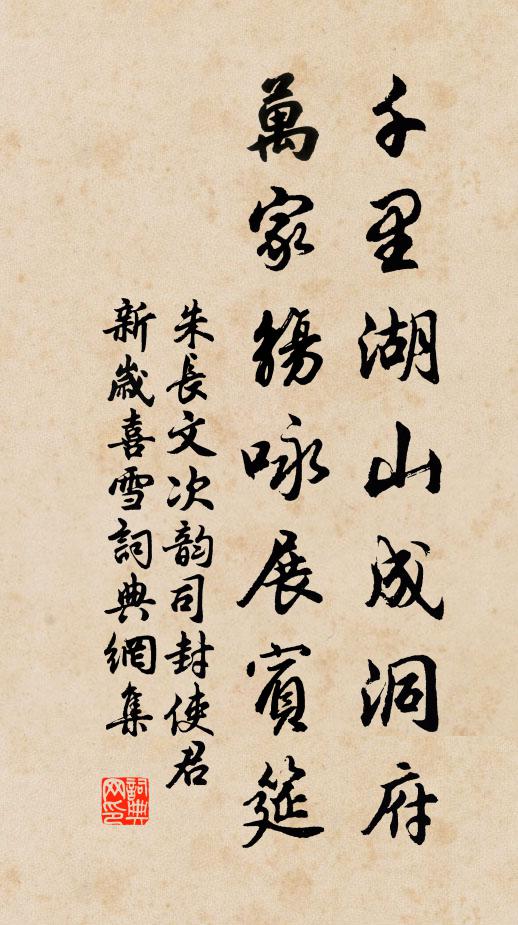 千里湖山成洞府
萬家觴咏展賓筵
朱長文次韵司封使君
新歲喜雪詞典網集
詞典網印